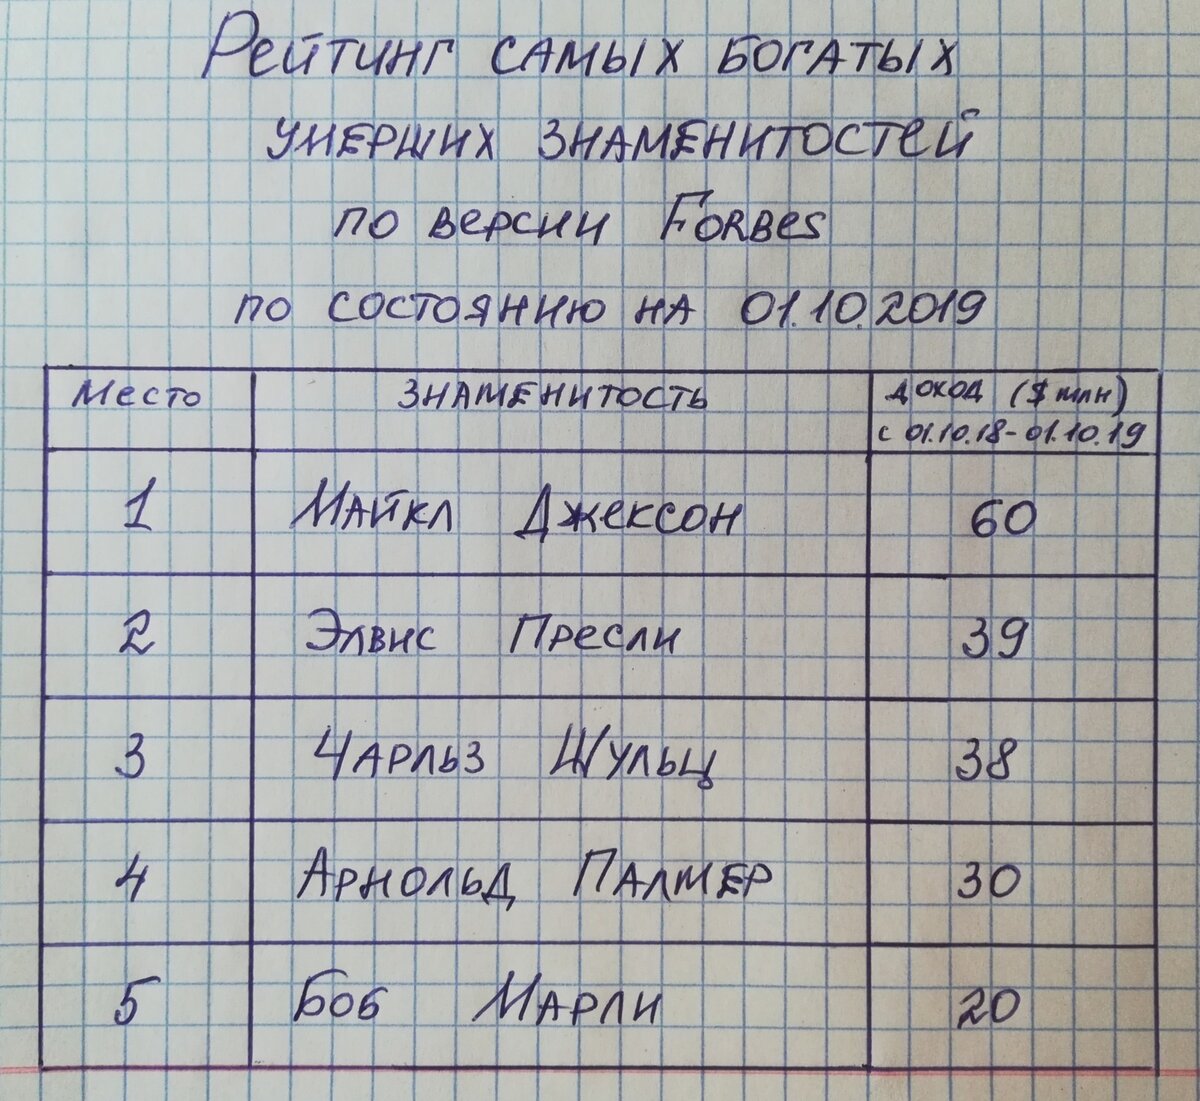 Рейтинг самых богатых
умерших знаменитостей
по версии Forbes
по состоянию на 01.10.2019
Место Знаменитость Доход ($ млн)
с 01.10.18-01.10.19
1 Майкл Джексон 60
2 Элвис Пресли 39
3 Чарльз Шульц 38
4 Арнольд Палмер 30
5 Боб Марли 20